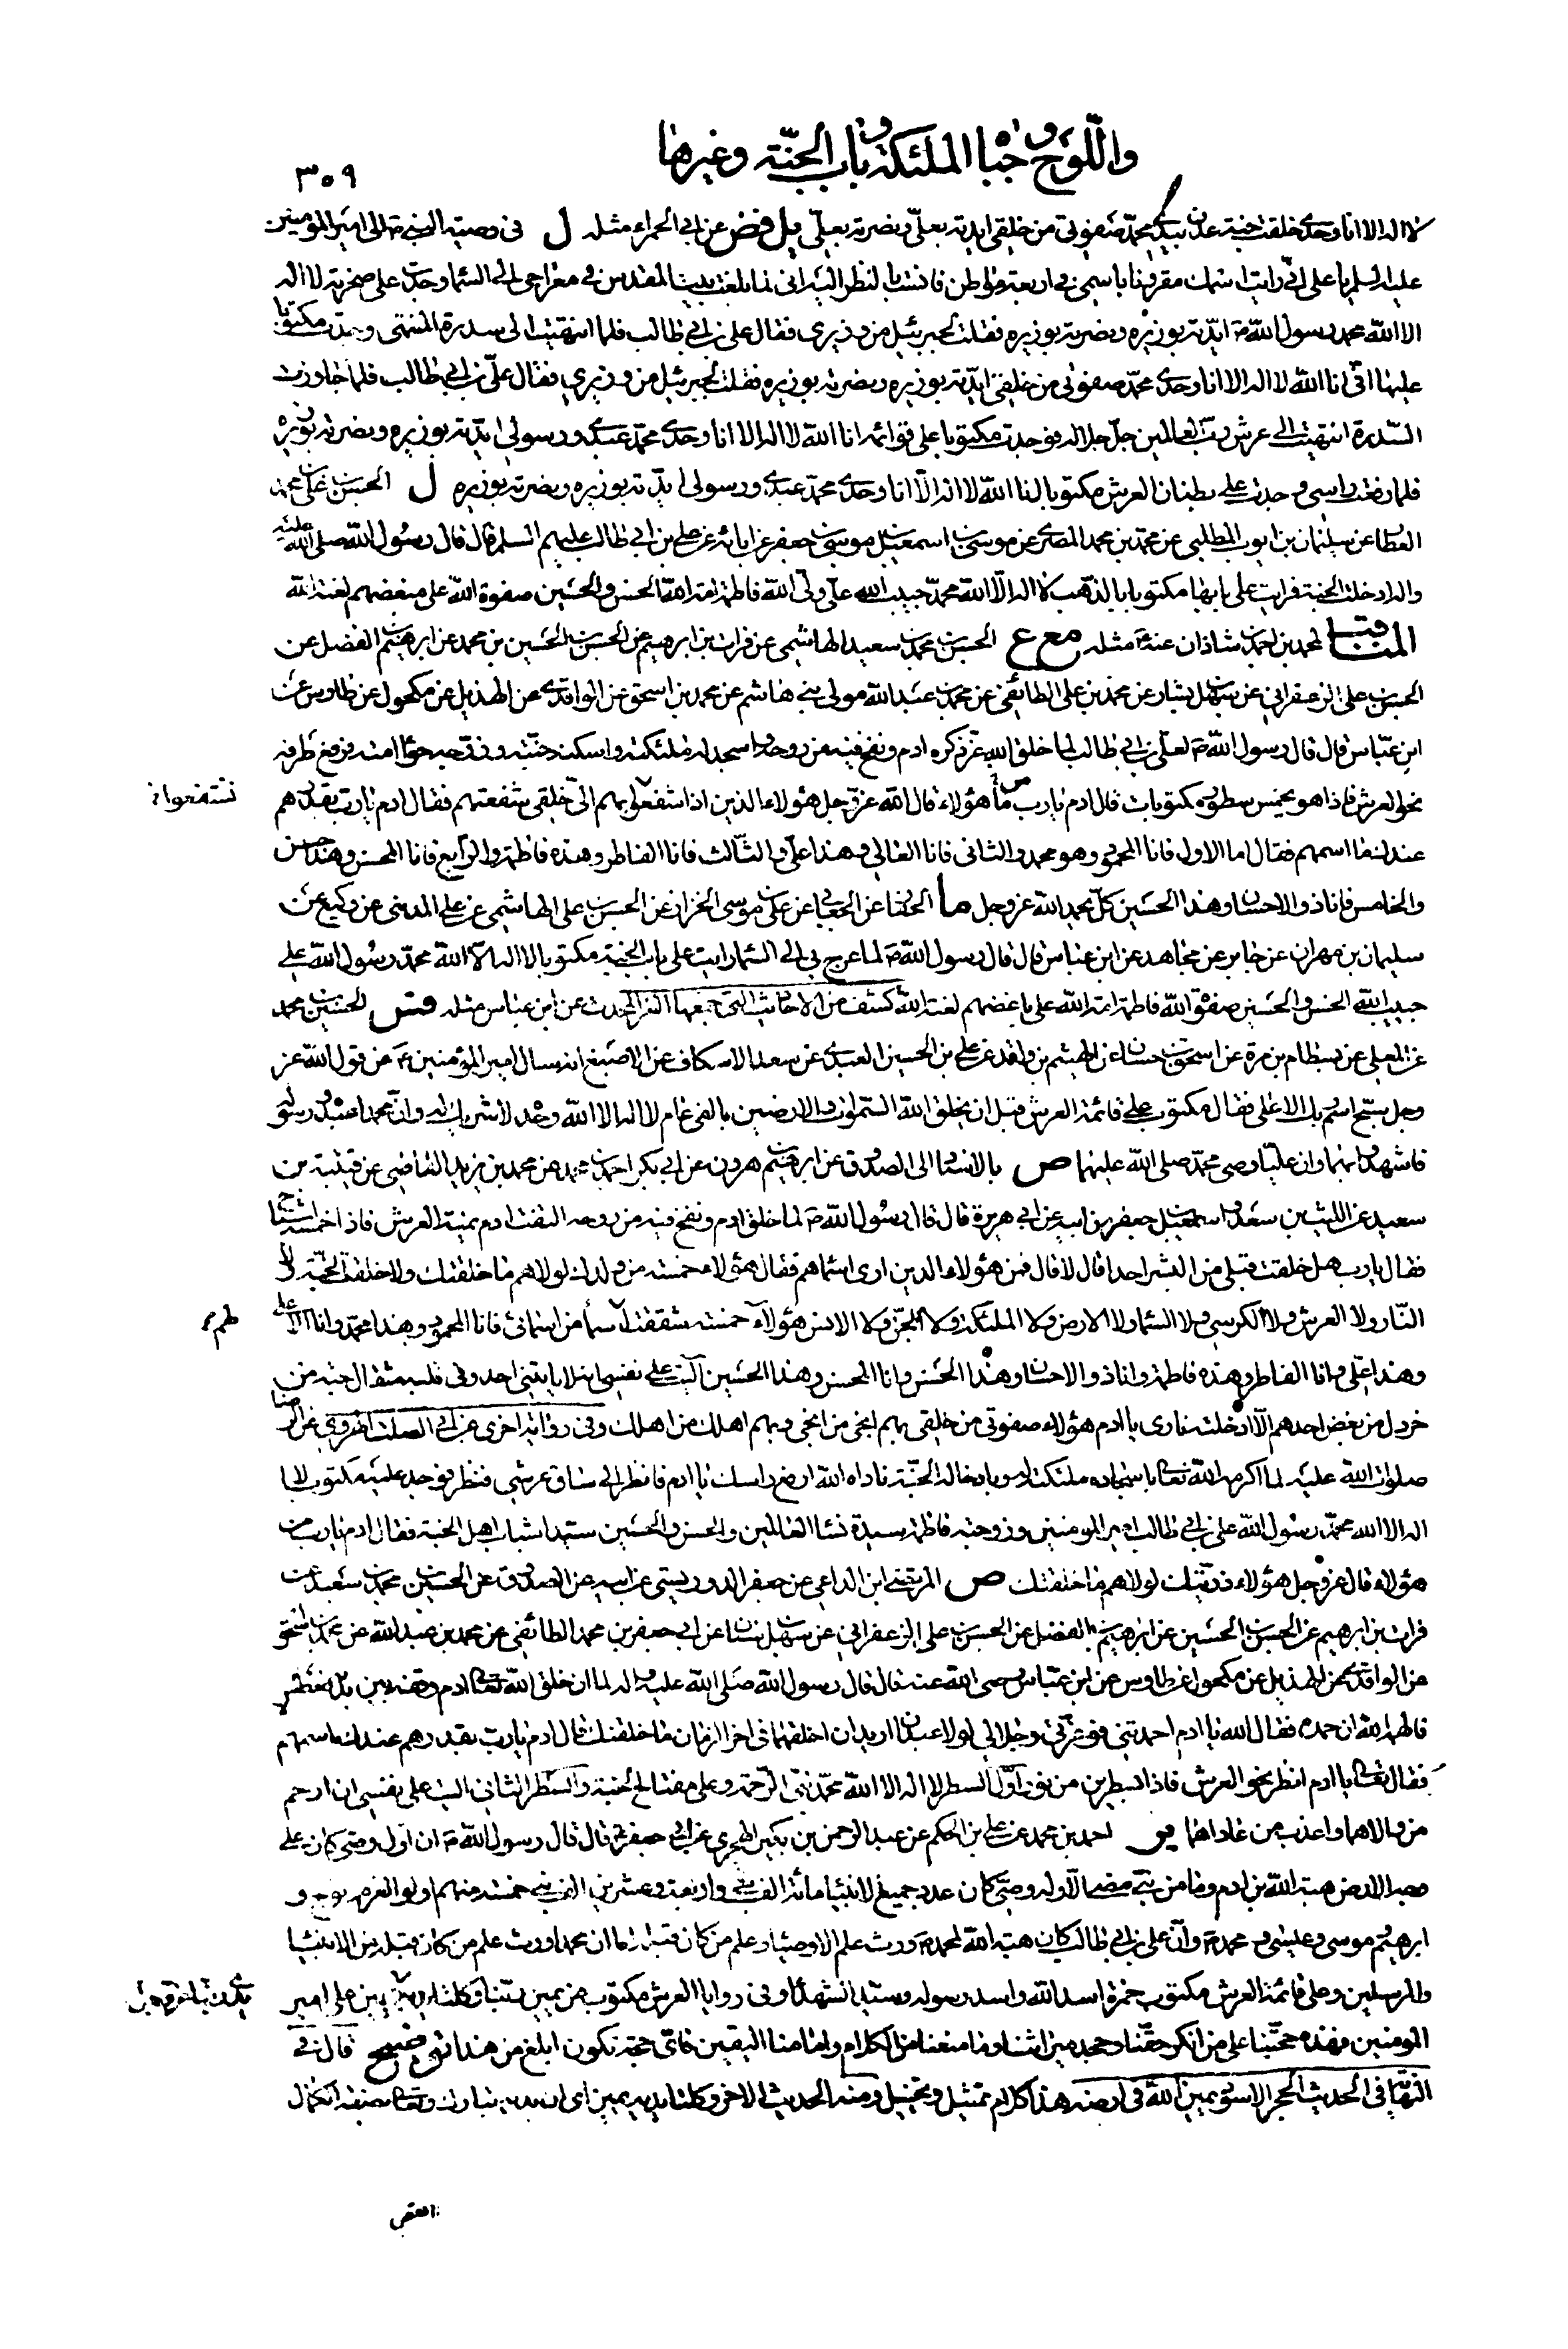 واللوح وجباه الملئكة وباب الجنة وغيرها
٣٠٩
لا اله الا انا وحدى خلقت جنة عدن بيدى محمد صفوتى من خلقى ايدته بعلى ونصرته بعلى يل فض عن ابى الحمراء مثله ل فى وصية النبى ص الى امير المومنين
عليه السلم يا على انى رايت اسمك مقرونا باسمى فى اربعة مواطن فانست بالنظر اليه انى لما بلغت بيت المقدس فى معراجى الى السماء وجدت على صخرته لا اله
الا الله محمد رسول الله ص ايدته بوزيره ونصرته بوزيره فقلت لجبرئيل من وزيرى فقال على بن ابى طالب فلما انتهيت الى سدرة المنتهى وجدت مكتوبا
عليها انى انا الله لا اله الا انا وحدى محمد صفوتى من خلقى ايدته بوزيره ونصرته بوزيره فقلت لجبرئيل من وزيري فقال على بن ابى طالب فلما جاوزت
السدرة انتهيت الى عرش رب العالمين جل جلاله فوجدت مكتوبا على قوائمه انا الله لا اله الا انا وحدى محمد عبدى ورسولى ايدته بوزيره ونصرته بوزيره
فلما رفعت راسى وجدت على بطنان العرش مكتوبا انا الله لا اله الا انا وحدى محمد عبدى ورسولى ايدته بوزيره ونصرته بوزيره ل الحسن بن على بن محمد
العطار عن سليمان بن ايوب المطلبى عن محمد بن محمد المصرى عن موسى بن اسمعيل بن موسى بن جعفر عن ابائه عن على بن ابى طالب عليهم السلم قال قال رسول الله صلى الله عليه
واله ادخلت الجنة فرايت على بابها مكتوبا بالذهب لا اله الا الله محمد حبيب الله على ولى الله فاطمة امة الله الحسن والحسين صفوة الله على مبغضهم لعنة الله
المناقب لمحمد بن احمد بن شاذان عنه ع مثله مع ع الحسن بن محمد بن سعيد الهاشمى عن فرات بن ابرهيم عن الحسن بن الحسين بن محمد عن ابرهيم بن الفضل عن
الحسن بن على الزعفرانى عن سهل بن بشار عن محمد بن على الطائفى عن محمد بن عبد الله مولى بنى هاشم عن محمد بن اسحق عن الواقدى عن الهذيل عن مكحول عن طاوس عن
ابن عباس قال قال رسول الله ص لعلى بن ابى طالب لما خلق الله عز ذكره ادم ونفخ فيه من روحه واسجد له ملئكته واسكنه جنته وزوجه حوا امته فرفع طرفه
نحو العرش فاذا هو بخمس سطور مكتوبات قال ادم يا رب ما هؤلاء قال الله عز وجل هؤلاء الذين اذا شفعوا بهم الى خلقى شفعتهم فقال ادم يا رب بقدرهم
عندك ما اسمهم فقال اما الاول فانا المحمود وهو محمد والثانى فانا العالى وهذا على والثالث فانا الفاطر وهذه فاطمة والرابع فانا المحسن وهذا حسن
والخامس فانا ذو الاحسان وهذا الحسين كل يحمد الله عز وجل ما الحفار عن الجعابى عن على بن موسى الخزاز عن الحسن بن على الهاشمى عن على المدينى عن وكيع عن
سليمان بن مهران عن جابر عن مجاهد عن ابن عباس قال قال رسول الله ص لما عرج بى الى السماء رايت على باب الجنة مكتوبا لا اله الا الله محمد رسول الله على
حبيب الله الحسن والحسين صفوة الله فاطمة امة الله على باغضهم لعنة الله كشف من الاحاديث التى جمعها العز المحدث عن ابن عباس مثله فس الحسين بن محمد
عن المعلى عن بسطام بن مرة عن اسحق بن حسان عن الهيثم بن واقد عن على بن الحسين العبدى عن سعد الاسكاف عن الاصبغ انه سال امير المؤمنين ع عن قول الله عز
وجل سبح اسم ربك الاعلى فقال مكتوب على قائمة العرش قبل ان يخلق الله السموات والارضين بالفى عام لا اله الا الله وحده لا شريك له وان محمدا عبده ورسوله
فاشهدوا بهما وان عليا وصى محمد صلى الله عليهما ص بالاسناد الى الصدوق عن ابرهيم بن هرون عن ابى بكر احمد بن محمد عن محمد بن يزيد القاضى عن قتيبة بن
سعيد عن الليث بن سعد واسمعيل بن جعفر عن ابيه عن ابى هريرة قال قال رسول الله ص لما خلق ادم ونفخ فيه من روحه التفت ادم يمنة العرش فاذا خمسة اشباح
فقال يا رب هل خلقت قبلى من البشر احدا قال لا قال فمن هؤلاء الذين ارى اسماهم فقال هؤلاء خمسة من ولدك لولاهم ما خلقتك ولا خلقت الجنة ولا
النار ولا العرش ولا الكرسى ولا السماء ولا الارض ولا الملئكة ولا الجن ولا الانس هؤلاء خمسة شققت لهم اسما من اسمائى فانا المحمود وهذا محمد وانا الاعلى
وهذا على وانا الفاطر وهذه فاطمة وانا ذو الاحسان وهذا الحسن وانا المحسن وهذا الحسين اليت على نفسى انه لا ياتينى احد وفى قلبه مثقال حبة من
خردل من بغض احدهم الا ادخلته نارى يا ادم هؤلاء صفوتى من خلقى بهم انجى من انجى وبهم اهلك من اهلك وفى رواية اخرى عن ابى الصلت الهروى عن الرضا
صلوات الله عليه لما اكرمه الله تعالى باسجاده ملئكته له وبادخاله الجنة ناداه الله ارفع راسك يا ادم فانظر الى ساق عرشى فنظر فوجد عليه مكتوبا لا
اله الا الله محمد رسول الله على بن ابى طالب امير المومنين وزوجته فاطمة سيدة نساء العالمين والحسن والحسين سيدا شباب اهل الجنة فقال ادم يا رب من
هؤلاء قال عز وجل هؤلاء ذريتك لولاهم ما خلقتك ص المرتضى ابن الداعى عن جعفر الدوريستى عن ابيه عن الصدوق عن الحسين بن محمد بن سعيد عن
فرات بن ابرهيم عن الحسن بن الحسين عن ابرهيم بن الفضل عن الحسن بن على الزعفرانى عن سهل بن سنان عن ابى جعفر بن محمد الطائفى عن محمد بن عبد الله عن محمد بن اسحق
عن الواقدى عن الهذيل عن مكحول عن طاوس عن ابن عباس رضى الله عنه قال قال رسول الله صلى الله عليه واله لما ان خلق الله تعالى ادم وقفه بين يديه فعطس
فالهمه الله ان حمده فقال الله يا ادم احمدتنى فوعزتى وجلالى لولا عبدان اريد ان اخلقهما فى اخر الزمان ما خلقتك قال ادم يا رب بقدرهم عندك ما اسمهم
فقال تعالى يا ادم انظر نحو العرش فاذا بسطرين من نور اول السطر لا اله الا الله محمد نبى الرحمة وعلى مفتاح الجنة والسطر الثانى اليت على نفسى ان ارحم
من والاهما واعذب من عاداهما ير احمد بن محمد عن على بن الحكم عن عبد الرحمن بن بكير الهجرى عن ابى جعفر ع قال قال رسول الله ص ان اول وصى كان على
وجه الارض هبة الله بن ادم وما من نبى مضى الا وله وصى كان عدد جميع الانبياء مائة الف نبى واربعة وعشرين الف نبى خمسة منهم اولو العزم نوح و
ابرهيم وموسى وعيسى ومحمد ص وان على بن ابى طالب كان هبة الله لمحمد ص ورث علم الاوصياء وعلم من كان قبله اما ان محمدا ورث علم من كان قبله من الانبياء
والمرسلين وعلى قائمة العرش مكتوب حمزة اسد الله واسد رسوله وسيد الشهداء وفى زوايا العرش مكتوب عن يمين ربنا وكلتا يديه يمين على امير
المومنين فهذه حجتنا على من انكر حقنا وجحد ميراثنا وما منعنا من الكلام وامامنا اليقين فاى حجة تكون ابلغ من هذا توضيح قال فى
النهاية فى الحديث الحجر الاسود يمين الله فى ارضه هذا كلام تمثيل وتخييل ومنه الحديث الاخر وكلتا يديه يمين اى ان يديه تبارك وتعالى بصفة الكمال